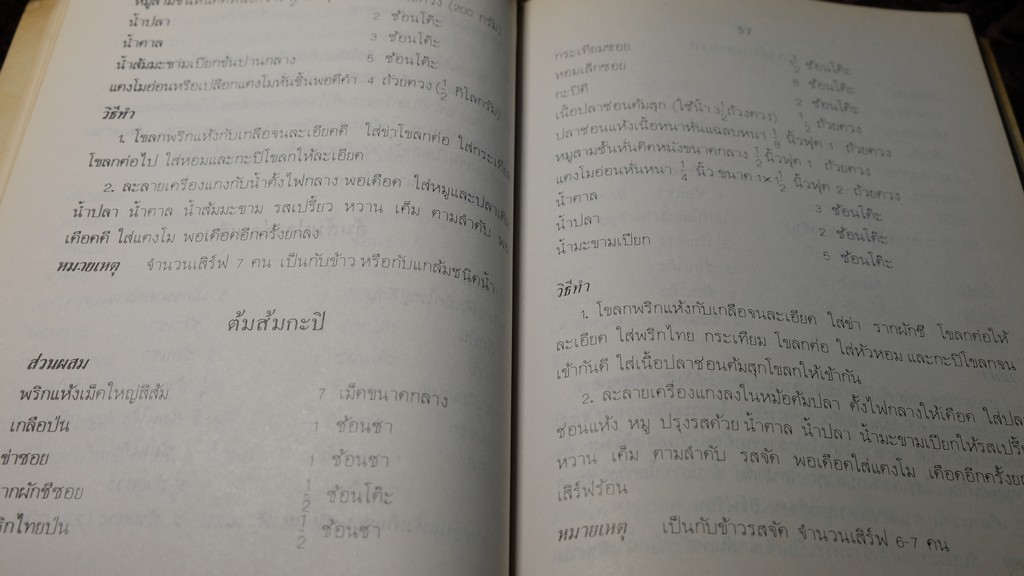 (200 กรัม)
น้ำปลา 2 ช้อนโต๊ะ
น้ำตาล 3 ช้อนโต๊ะ
น้ำส้มมะขามเปียกข้นปานกลาง 5 ช้อนโต๊ะ
แตงโมอ่อนหรือเปลือกแตงโมหั่นชิ้นพอดีคำ 4 ถ้วยตวง (1/2 กิโลกรัม)
วิธีทำ
1. โขลกพริกแห้งกับเกลือจนละเอียดดี ใส่ข่าโขลกต่อ ใส่กระเทียม
โขลกต่อไป ใส่หอมและกะปิโขลกให้ละเอียด
2. ละลายเครื่องแกงกับน้ำตั้งไฟกลาง พอเดือด ใส่หมูและปลา
น้ำปลา น้ำตาล น้ำส้มมะขาม รสเปรี้ยว หวาน เค็ม ตามลำดับ พอ
เดือดดี ใส่แตงโม พอเดือดอีกครั้งยกลง
หมายเหตุ จำนวนเสิร์ฟ 7 คน เป็นกับข้าว หรือกับแกล้มชนิดน้ำ
ต้มส้มกะปิ
ส่วนผสม
พริกแห้งเม็ดใหญ่สีส้ม 7 เม็ดขนาดกลาง
เกลือป่น 1 ช้อนชา
ข่าซอย 1 ช้อนชา
รากผักชีซอย 1/2 ช้อนโต๊ะ
พริกไทยป่น 1/2 ช้อนชา
57
กระเทียมซอย ช้อนโต๊ะ
หอมเล็กซอย 8 ช้อนโต๊ะ
กะปิดี 2 ช้อนโต๊ะ
เนื้อปลาช่อนต้มสุก (ใช้น้ำ 3 1/2 ถ้วยตวง) 1/2 ถ้วยตวง
ปลาช่อนแห้งเนื้อหนาหั่นแฉลบหนา 1/8 นิ้วฟุต 1 ถ้วยตวง
หมูสามชั้นหั่นติดหนังขนาดกลาง 1/2 นิ้วฟุต 1 ถ้วยตวง
แตงโมอ่อนหั่นหนา 1/4 นิ้ว ขนาด 1×1 1/2 นิ้วฟุต 2 ถ้วยตวง
น้ำตาล 3 ช้อนโต๊ะ
น้ำปลา 2 ช้อนโต๊ะ
น้ำมะขามเปียก 5 ช้อนโต๊ะ
วิธีทำ
1. โขลกพริกแห้งกับเกลือจนละเอียด ใส่ข่า รากผักชี โขลกต่อให้
ละเอียด ใส่พริกไทย กระเทียม โขลกต่อ ใส่หัวหอม และกะปิโขลกจน
เข้ากันดี ใส่เนื้อปลาช่อนต้มสุกโขลกให้เข้ากัน
2. ละลายเครื่องแกงลงในหม้อต้มปลา ตั้งไฟกลางให้เดือด ใส่ปลา
ช่อนแห้ง หมู ปรุงรสด้วย น้ำตาล น้ำปลา น้ำมะขามเปียกให้รสเปรี้ยว
หวาน เค็ม ตามลำดับ รสจัด พอเดือดใส่แตงโม เดือดอีกครั้งยก
เสิร์ฟร้อน
หมายเหตุ เป็นกับข้าวรสจัด จำนวนเสิร์ฟ 6-7 คน